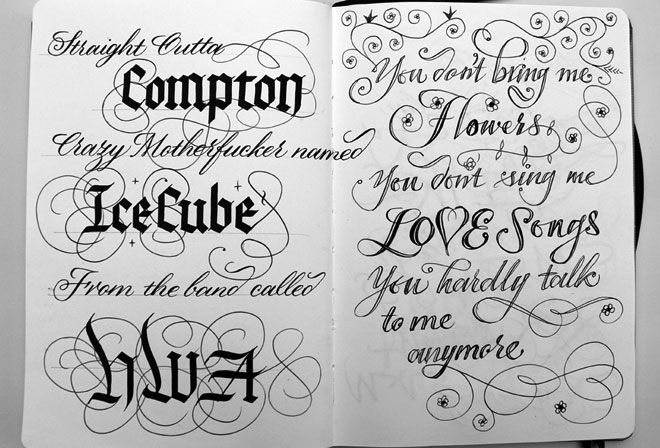 Straight Outta
Compton
Crazy Motherfucker named
IceCube
From the band called
NWA
You don't bring me
Flowers
You don't sing me
LOVE Songs
You hardly talk
to me
anymore